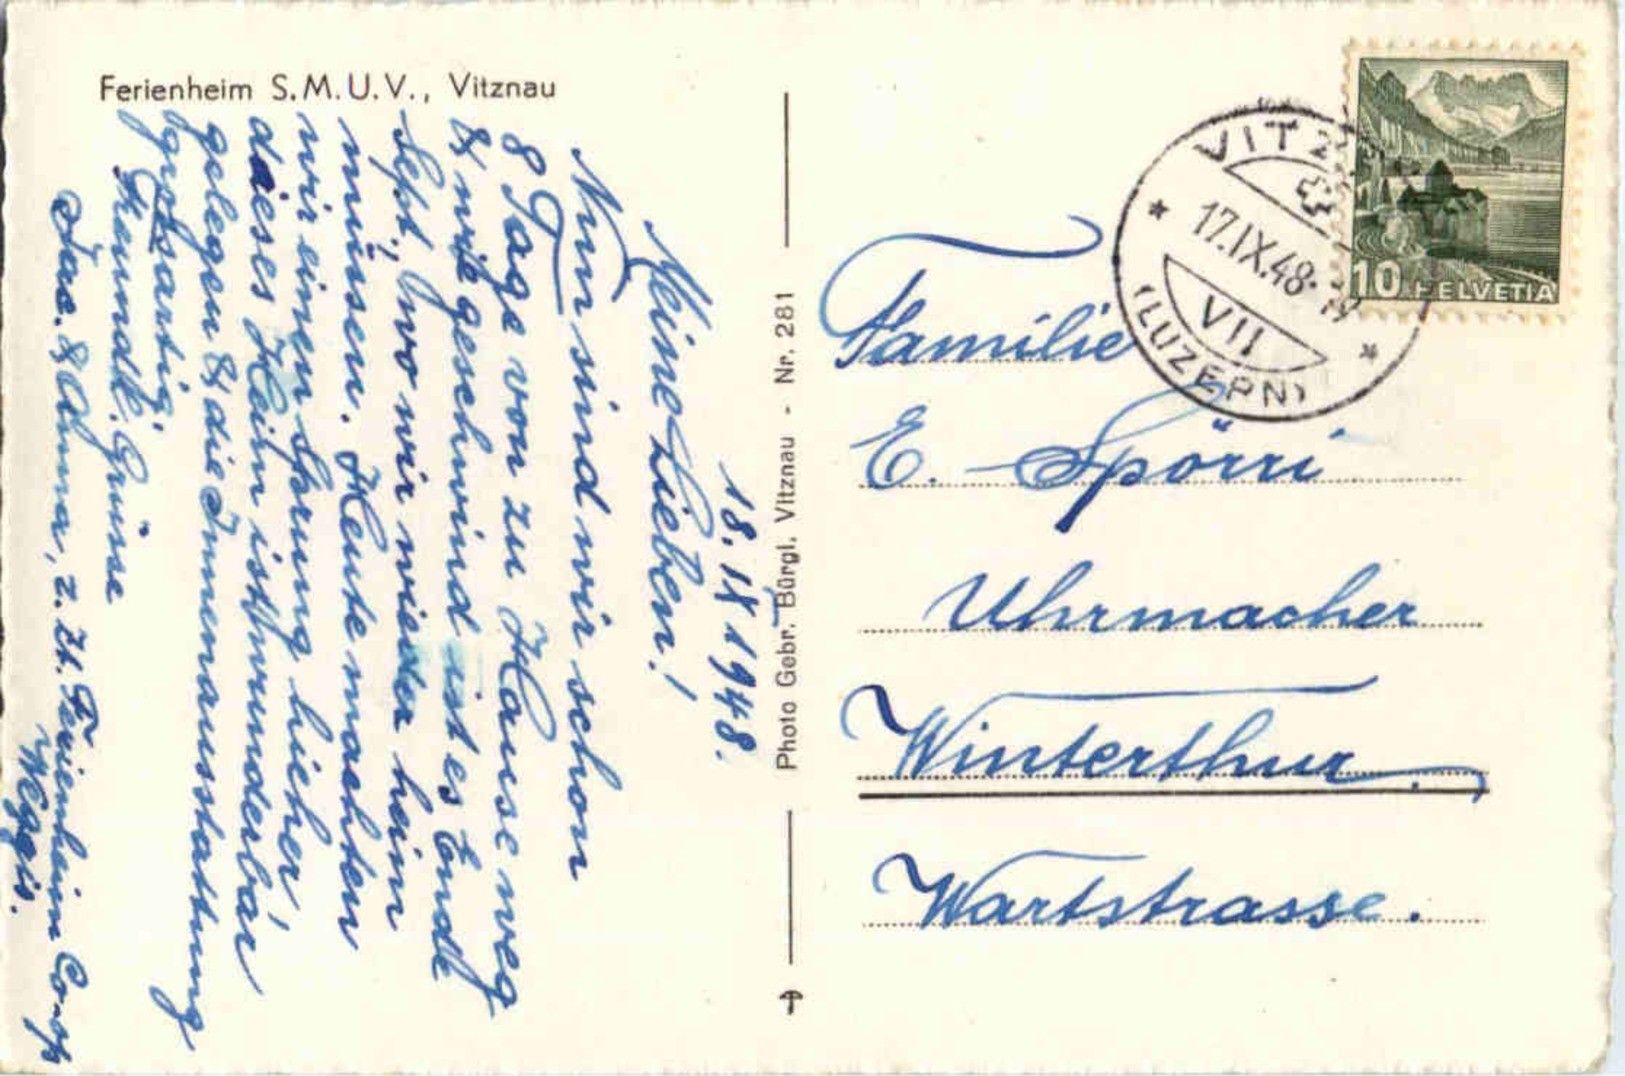 Ferienheim S.M.U.V., Vitznau
18. IX 1948.
Meine Lieben!
Nun sind wir schon
8 Tage von zu Hause weg
& wie geschwind ist es Ende
Sept., wo wir wieder heim
müssen. Heute machten
wir einen Sprung hieher,
dieses Heim ist wunderbar
gelegen & die Innenausstattung
grossartig.
Freundl. Grüsse
Jac. & Anna, z. Zt. Ferienheim Co-op
Weggis.
Photo Gebr. Bürgi, Vitznau - Nr. 281
VITZ
17.IX.48
VII
(LUZERN)
10 HELVETIA
Familie
E. Spörri
Uhrmacher
Winterthur.
Wartstrasse.